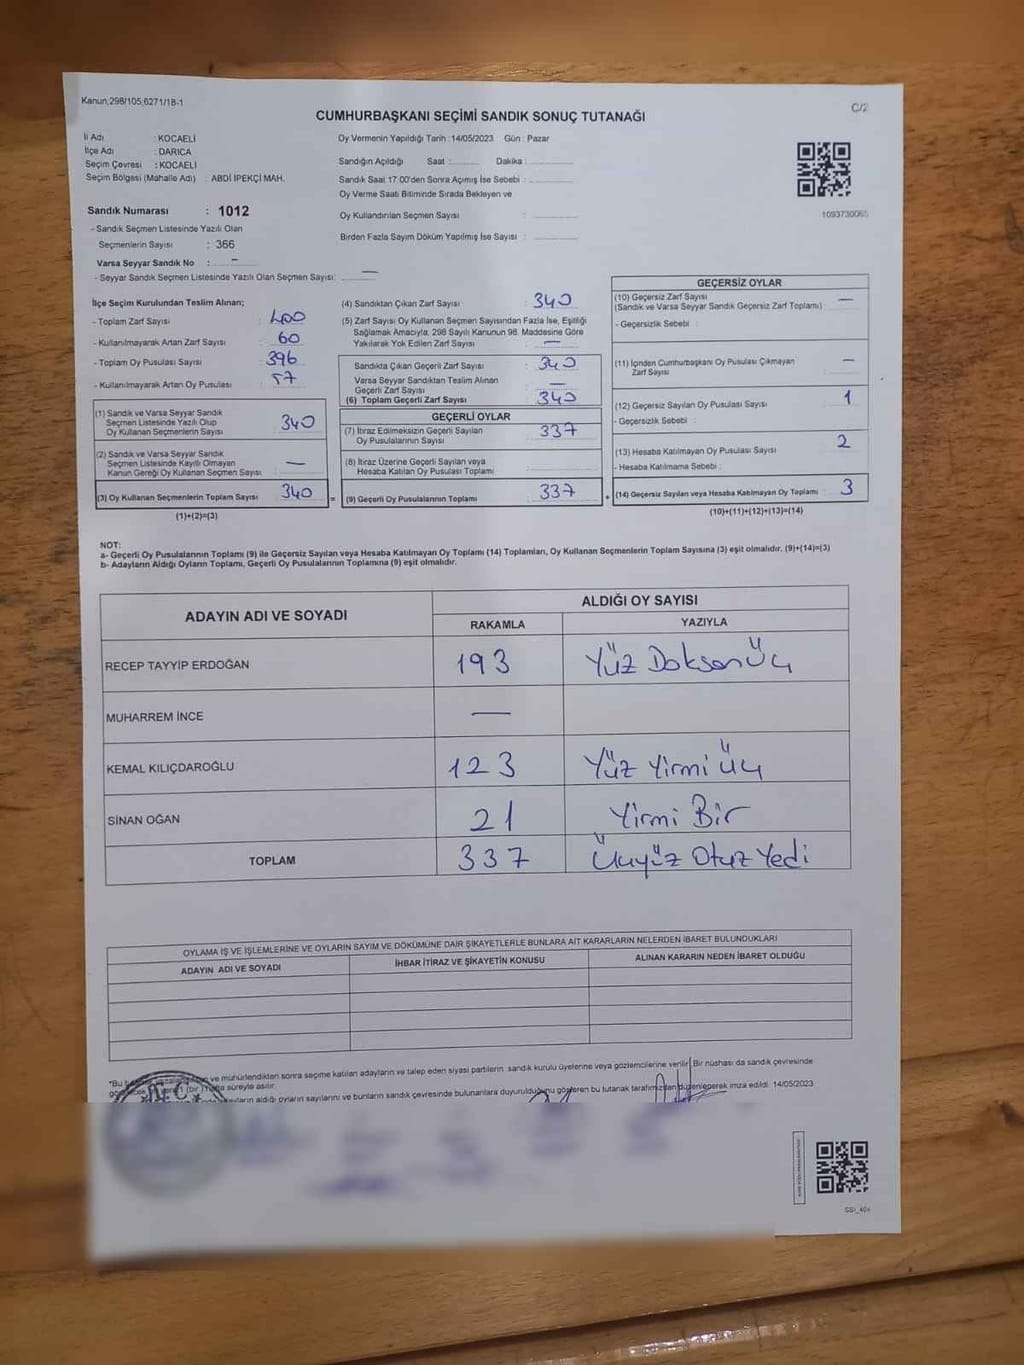 Kanun;298/105,6271/18-1
C/2
CUMHURBAŞKANI SEÇİMİ SANDIK SONUÇ TUTANAĞI
İl Adı : KOCAELİ
İlçe Adı : DARICA
Seçim Çevresi : KOCAELİ
Seçim Bölgesi (Mahalle Adı) : ABDİ İPEKÇİ MAH.
Sandık Numarası : 1012
- Sandık Seçmen Listesinde Yazılı Olan
Seçmenlerin Sayısı : 366
Varsa Seyyar Sandık No : -
- Seyyar Sandık Seçmen Listesinde Yazılı Olan Seçmen Sayısı: —
Oy Vermenin Yapıldığı Tarih :14/05/2023 Gün : Pazar
Sandığın Açıldığı Saat : Dakika :
Sandık Saat 17:00'den Sonra Açımış İse Sebebi :
Oy Verme Saati Bitiminde Sırada Bekleyen ve
Oy Kullandırılan Seçmen Sayısı :
Birden Fazla Sayım Döküm Yapılmış İse Sayısı :
1093730065
İlçe Seçim Kurulundan Teslim Alınan;
- Toplam Zarf Sayısı : 400
- Kullanılmayarak Artan Zarf Sayısı : 60
- Toplam Oy Pusulası Sayısı : 396
- Kullanılmayarak Artan Oy Pusulası : 57
(1) Sandık ve Varsa Seyyar Sandık
Seçmen Listesinde Yazılı Olup
Oy Kullanan Seçmenlerin Sayısı 340
(2) Sandık ve Varsa Seyyar Sandık
Seçmen Listesinde Kayıtlı Olmayan
Kanun Gereği Oy Kullanan Seçmen Sayısı —
(3) Oy Kullanan Seçmenlerin Toplam Sayısı 340
(1)+(2)=(3)
(4) Sandıktan Çıkan Zarf Sayısı : 340
(5) Zarf Sayısı Oy Kullanan Seçmen Sayısından Fazla İse, Eşitliği
Sağlamak Amacıyla, 298 Sayılı Kanunun 98. Maddesine Göre
Yakılarak Yok Edilen Zarf Sayısı : —
Sandıkta Çıkan Geçerli Zarf Sayısı : 340
Varsa Seyyar Sandıktan Teslim Alınan
Geçerli Zarf Sayısı : —
(6) Toplam Geçerli Zarf Sayısı : 340
GEÇERLİ OYLAR
(7) İtiraz Edilmeksizin Geçerli Sayılan
Oy Pusulalarının Sayısı 337
(8) İtiraz Üzerine Geçerli Sayılan veya
Hesaba Katılan Oy Pusulası Toplamı
= (9) Geçerli Oy Pusulalarının Toplamı 337
GEÇERSİZ OYLAR
(10) Geçersiz Zarf Sayısı
(Sandık ve Varsa Seyyar Sandık Geçersiz Zarf Toplamı) : —
- Geçersizlik Sebebi :
(11) İçinden Cumhurbaşkanı Oy Pusulası Çıkmayan
Zarf Sayısı : —
(12) Geçersiz Sayılan Oy Pusulası Sayısı : 1
- Geçersizlik Sebebi :
(13) Hesaba Katılmayan Oy Pusulası Sayısı : 2
- Hesaba Katılmama Sebebi :
+ (14) Geçersiz Sayılan veya Hesaba Katılmayan Oy Toplamı 3
(10)+(11)+(12)+(13)=(14)
NOT:
a- Geçerli Oy Pusulalarının Toplamı (9) ile Geçersiz Sayılan veya Hesaba Katılmayan Oy Toplamı (14) Toplamları, Oy Kullanan Seçmenlerin Toplam Sayısına (3) eşit olmalıdır. (9)+(14)=(3)
b- Adayların Aldığı Oyların Toplamı, Geçerli Oy Pusulalarının Toplamına (9) eşit olmalıdır.
ADAYIN ADI VE SOYADI
ALDIĞI OY SAYISI
RAKAMLA YAZIYLA
RECEP TAYYİP ERDOĞAN 193 Yüz Doksan Üç
MUHARREM İNCE —
KEMAL KILIÇDAROĞLU 123 Yüz Yirmi Üç
SİNAN OĞAN 21 Yirmi Bir
TOPLAM 337 Üçyüz Otuz Yedi
OYLAMA İŞ VE İŞLEMLERİNE VE OYLARIN SAYIM VE DÖKÜMÜNE DAİR ŞİKAYETLERLE BUNLARA AİT KARARLARIN NELERDEN İBARET BULUNDUKLARI
ADAYIN ADI VE SOYADI İHBAR İTİRAZ VE ŞİKAYETİN KONUSU ALINAN KARARIN NEDEN İBARET OLDUĞU
*Bu ve mühürlendikten sonra seçime katılan adayların ve talep eden siyasi partilerin sandık kurulu üyelerine veya gözlemcilerine verilir. Bir nüshası da sandık çevresinde
süreyle asılır.
aldığı oyların sayılarını ve bunların sandık çevresinde bulunanlara duyurulduğunu gösteren bu tutanak tarafımızdan düzenlenerek imza edildi. 14/05/2023
T.C.
SSt_404